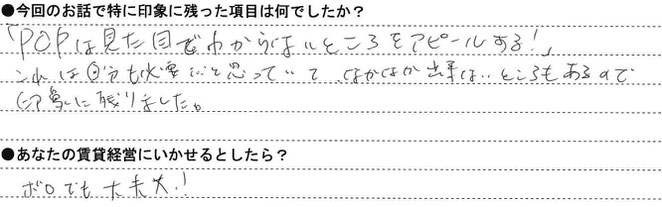 ●今回のお話で特に印象に残った項目は何でしたか？
「POPは見た目でわからないところをアピールする！」
これは自分も必要だと思っていて、なかなか出来ないところもあるので
印象に残りました。
●あなたの賃貸経営にいかせるとしたら？
ボロでも大丈夫！